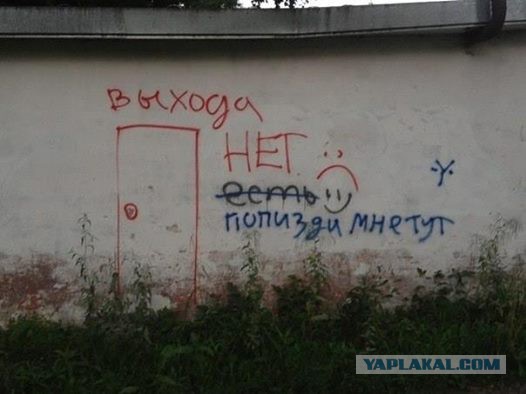 выхода
НЕТ :(
есть :)
попизди мне тут
YAPLAKAL.COM